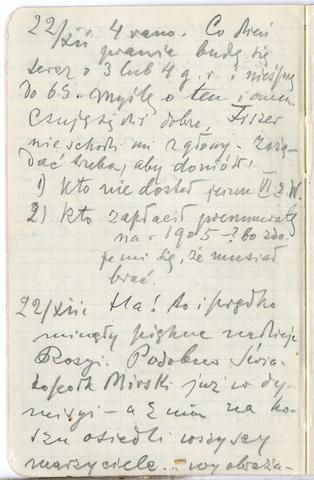 22/XII 4 rano. Co dzień
prawie budzę się
teraz o 3 lub 4 g. r. i nie śpię
do 6 5. Myślę o tem i owem
Czuję się dziś dobrze, Fiszer
nie schodzi mi z głowy. Zażą-
dać trzeba, aby doniósł:
1) Kto nie dostał jeszcze VI z. W.
2) Kto zapłacił prenumeratę
na r 1905 – ? bo zda-
je mi się, że musiał
brać.
22/XII Ha! to i prędko
minęły piękne nadzieje
Rosyi. Podobno Świa-
topełk Mirski już w dy-
misyi – a z nim na ko-
szu osiedli wszyscy
marzyciele... wyobraża-